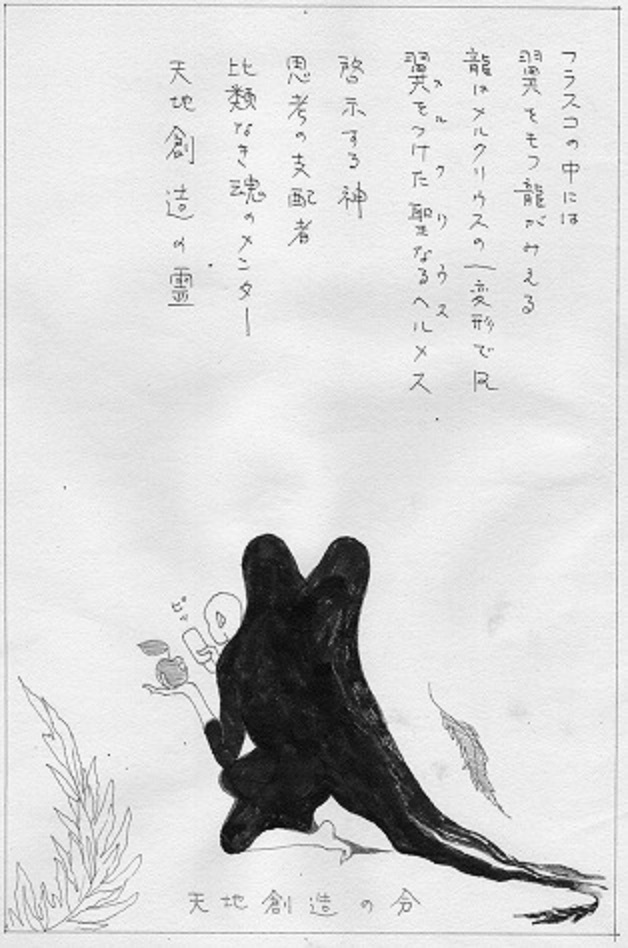 フラスコの中には
翼をもつ龍がみえる
龍はメルクリウスの一変形で
メルクリウス
翼をつけた聖なるヘルメス
啓示する神
思考の支配者
比類なき魂のメンター
天地創造の霊
ピッ
天地創造の分